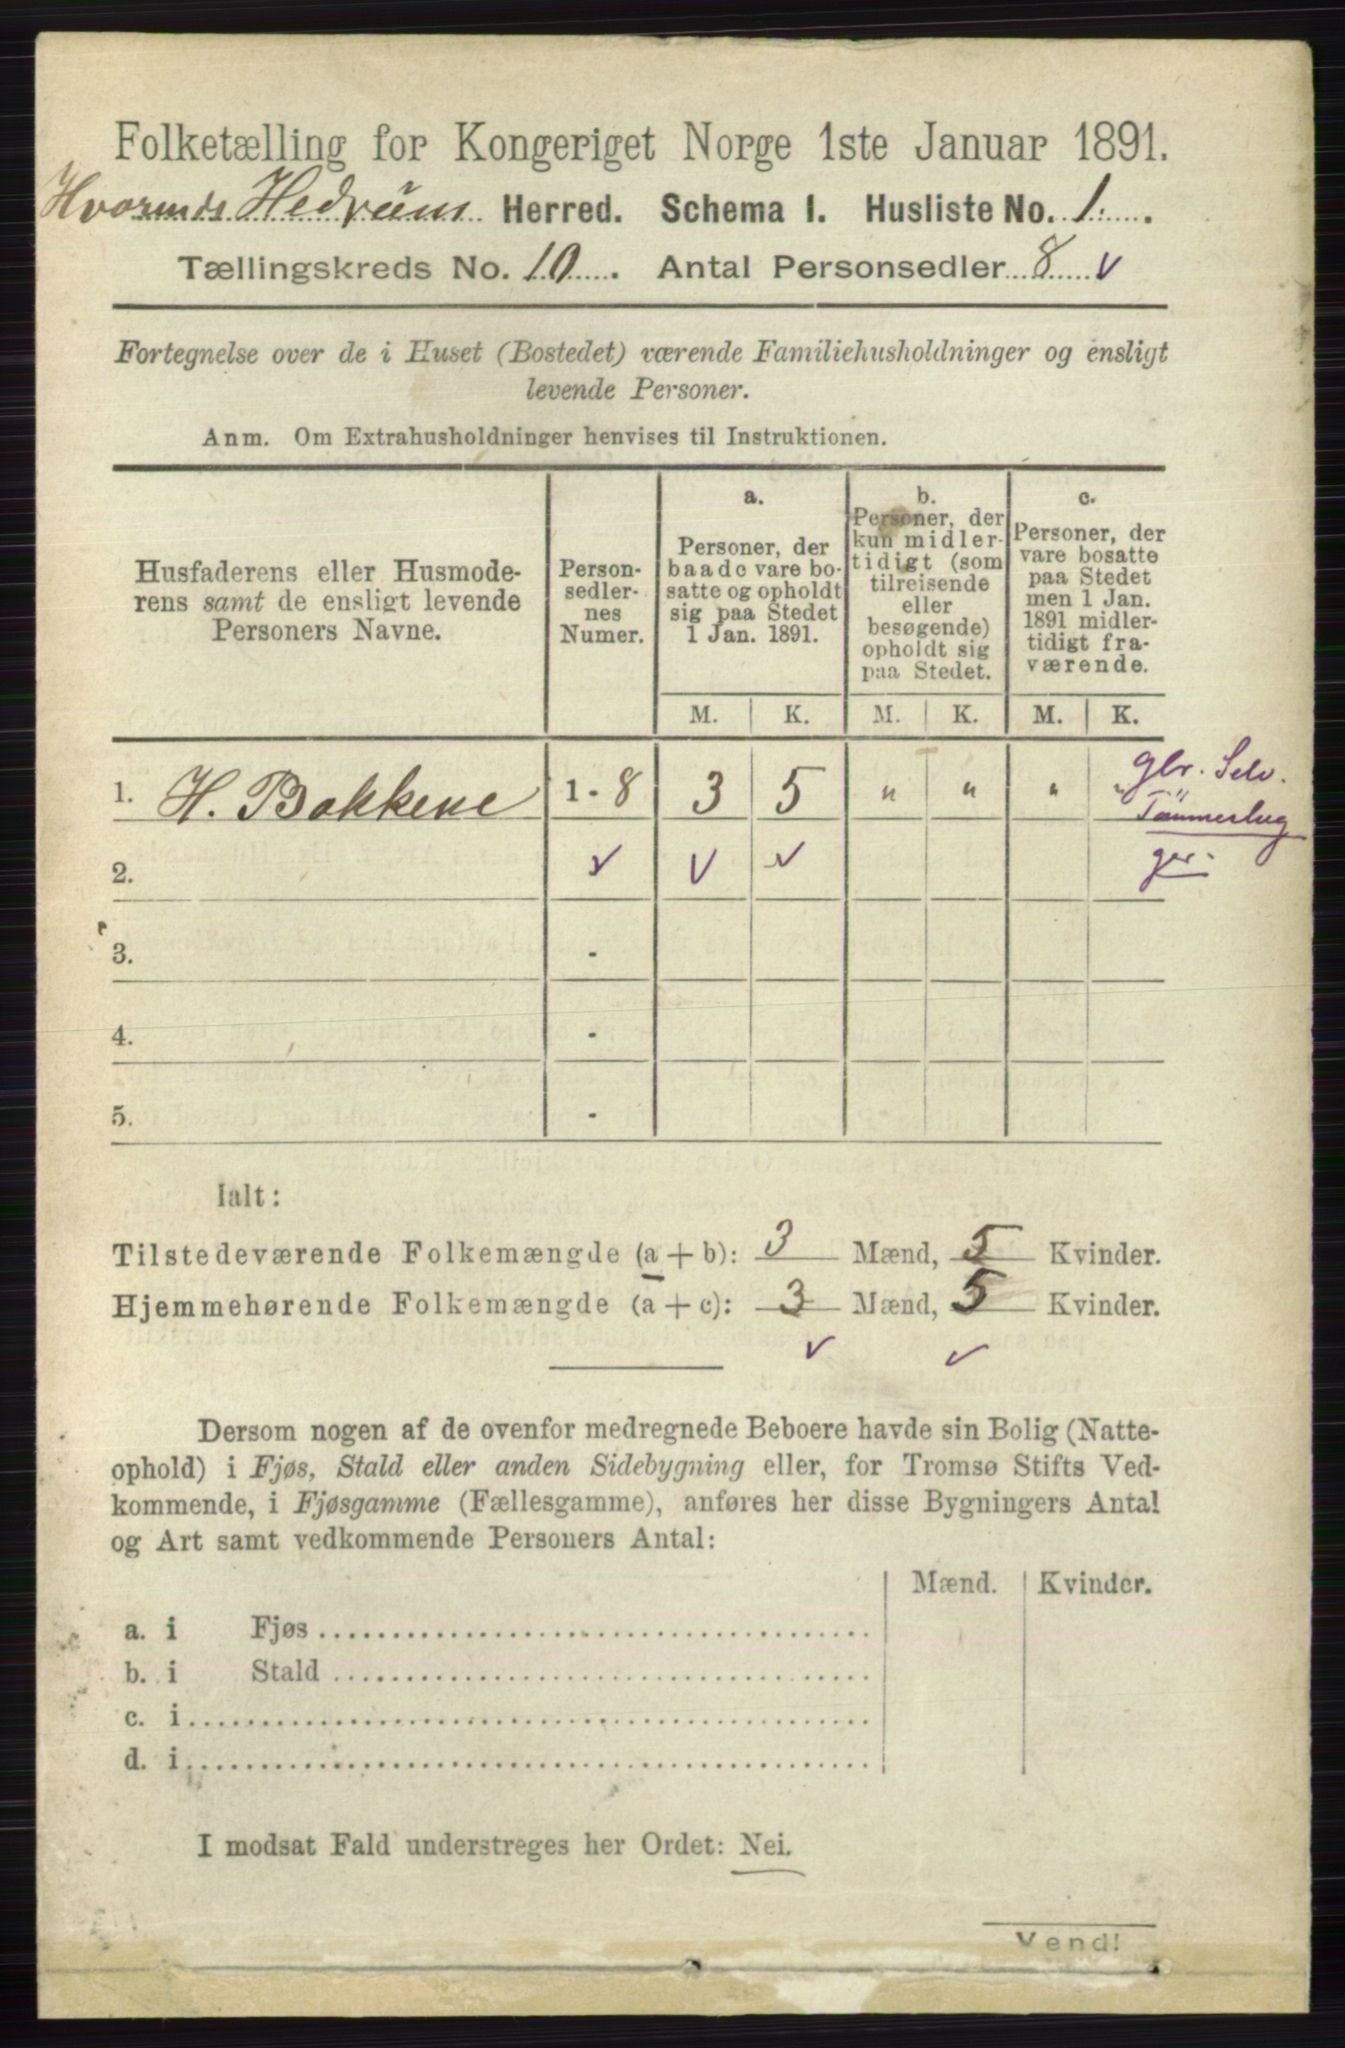 Folketælling for Kongeriget Norge 1ste Januar 1891.
Hedrum Herred. Schema I. Husliste No. 1.
Tællingskreds No. 10. Antal Personsedler 8 v
Fortegnelse over de i Huset (Bostedet) værende Familiehusholdninger og ensligt
levende Personer.
Anm. Om Extrahusholdninger henvises til Instruktionen.
Husfaderens eller Husmode-
rens samt de ensligt levende
Personers Navne.
Person-
sedler-
nes
Numer.
a.
Personer, der
baade vare bo-
satte og opholdt
sig paa Stedet
1 Jan. 1891.
b.
Personer, der
kun midler-
tidigt (som
tilreisende
eller
besøgende)
opholdt sig
paa Stedet.
c.
Personer, der
vare bosatte
paa Stedet
men 1 Jan.
1891 midler-
tidigt fra-
værende.
M. K. M. K. M. K.
1. H. Bakkene 1 - 8 3 5 " " " " gbr. Selv.
Tømmerhug
2. v v v ger.
3. -
4. -
5. -
Ialt:
Tilstedeværende Folkemængde (a + b): 3 Mænd, 5 Kvinder.
Hjemmehørende Folkemængde (a + c): 3 Mænd, 5 Kvinder.
v v
Dersom nogen af de ovenfor medregnede Beboere havde sin Bolig (Natte-
ophold) i Fjøs, Stald eller anden Sidebygning eller, for Tromsø Stifts Ved-
kommende, i Fjøsgamme (Fællesgamme), anføres her disse Bygningers Antal
og Art samt vedkommende Personers Antal:
Mænd. Kvinder.
a. i Fjøs
b. i Stald
c. i
d. i
I modsat Fald understreges her Ordet: Nei.
Vend!